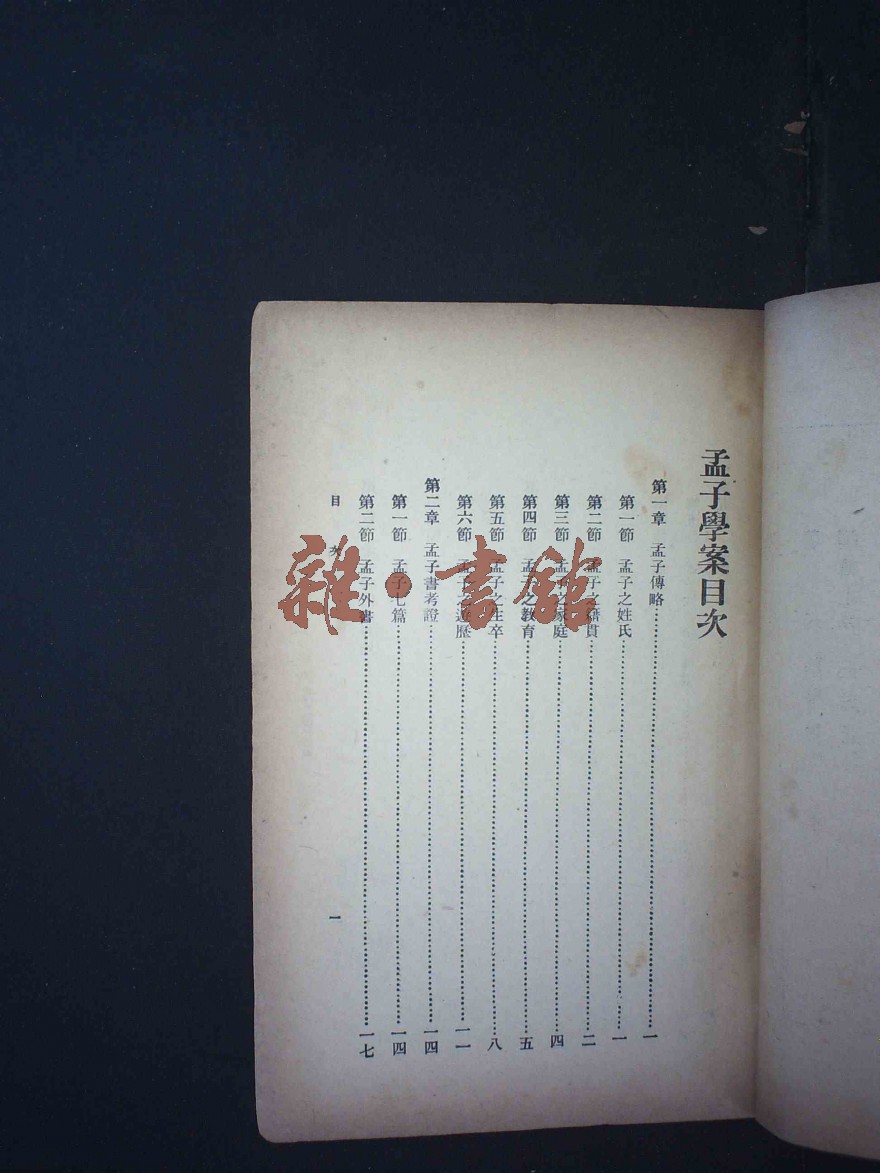 孟子學案目次
第一章 孟子傳略⋯⋯一
第一節 孟子之姓氏⋯⋯一
第二節 孟子之籍貫⋯⋯二
第三節 孟子之家庭⋯⋯四
第四節 孟子之教育⋯⋯五
第五節 孟子之生卒⋯⋯八
第六節 孟子之遊歷⋯⋯一一
第二章 孟子書考證⋯⋯一四
第一節 孟子七篇⋯⋯一四
第二節 孟子外書⋯⋯一七
目次
一
雜·書館